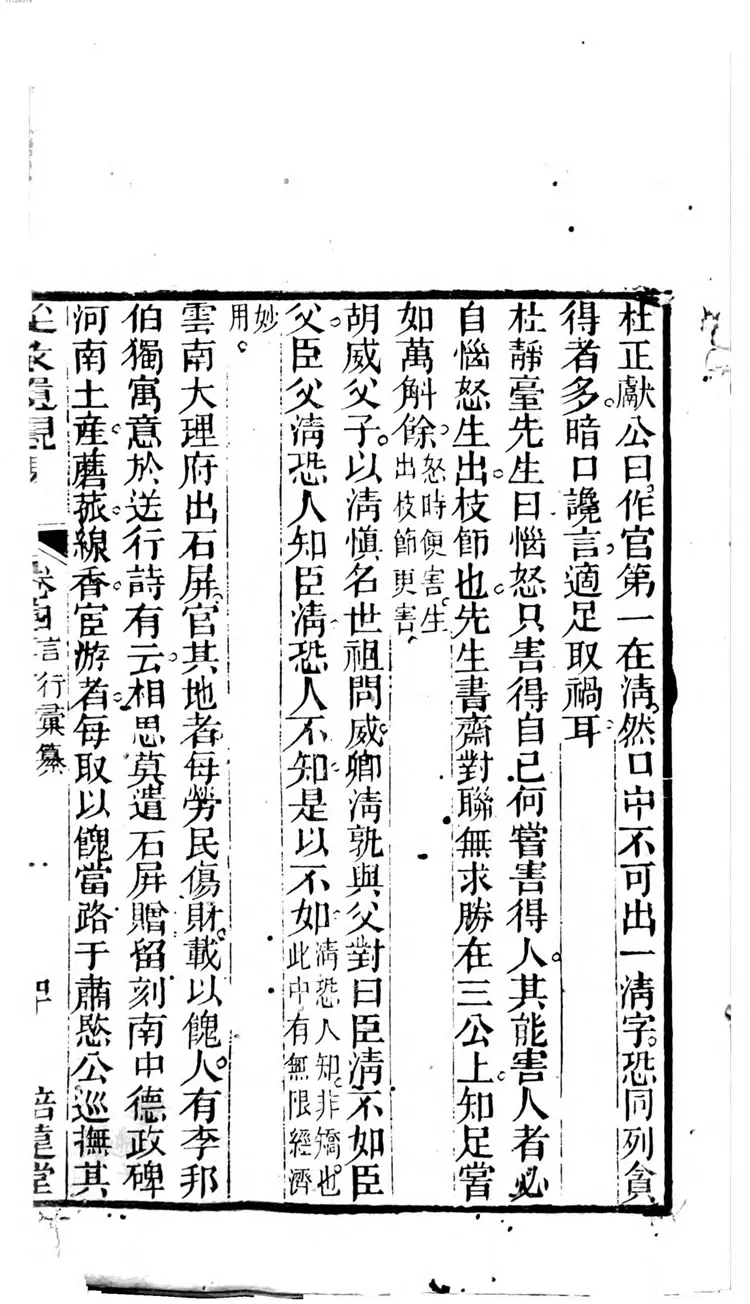 杜正獻公曰作官第一在淸然口中不可出一淸字恐同列貪
得者多暗口讒言適足取禍耳
杜靜臺先生曰惱怒只害得自己何嘗害得人其能害人者必
自惱怒生出枝節也先生書齋對聯無求勝在三公上知足嘗
如萬斛餘怒時便害生
出枝節更害
胡威父子以淸慎名世祖問威卿淸孰與父對曰臣淸不如臣
父臣父淸恐人知臣淸恐人不知是以不如淸恐人知非矯也
此中有無限經濟
妙
用
雲南大理府出石屏官其地者每勞民傷財載以餽人有李邦
伯獨寓意於送行詩有云相思莫遣石屏贈留刻南中德政碑
河南土產蘑菰線香宦游者每取以餽當路于肅愍公巡撫其
言行彙纂
培遠堂